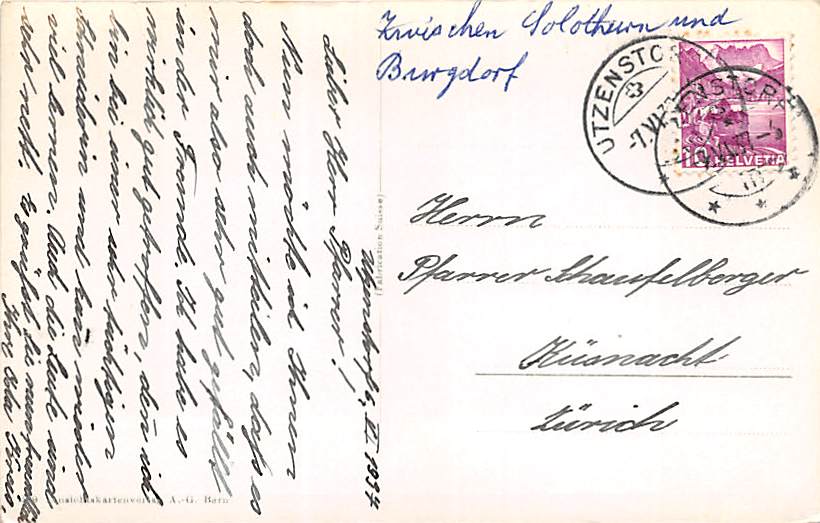 Zwischen Solothurn und
Burgdorf
UTZENSTORF
-7.VI.37
UTZENSTORF
10 HELVETIA
Herrn
Pfarrer Schaufelberger
Küsnacht
Zürich
(Fabrication Suisse)
Ansichtskartenverlag A.-G. Bern
Utzenstorf 6. VI. 1937
Sehr Herr Pfarrer!
Nun möchte ich Ihnen
doch auch mitteilen, dass es
mir also sehr gut gefällt
in der Fremde. Ich habe es
wirklich gut getroffen, denn ich
bin bei einer sehr tüchtigen
Schneiderin und kann wieder
viel lernen. Und die Leute sind
sehr nett. Es grüsst Sie
Ihre